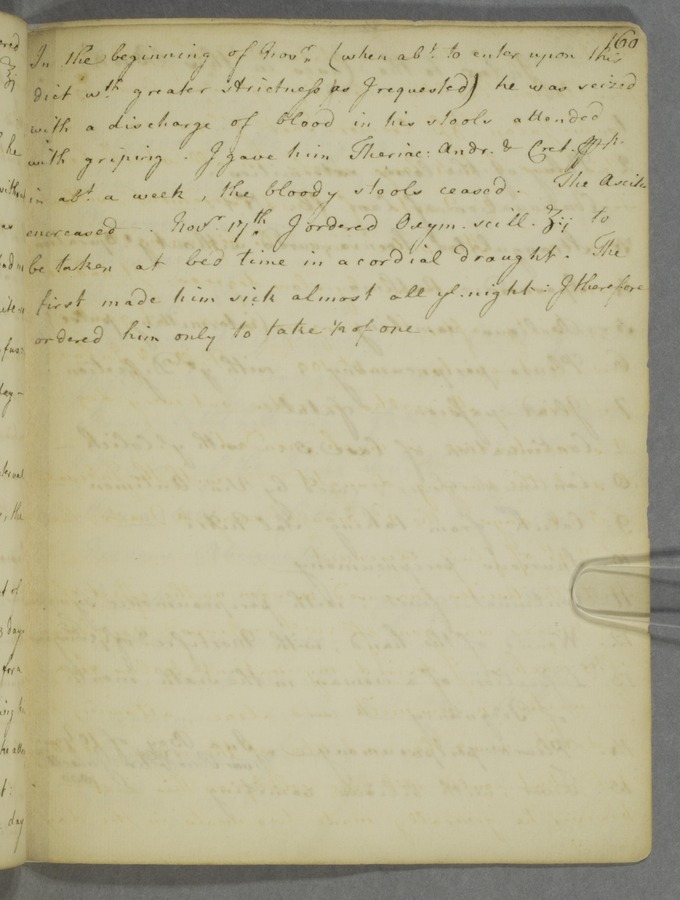 160
In the beginning of Novr. (when abt. to enter upon this
diet wth. greater strictness as I requested) he was seized
with a discharge of blood in his stools attended
with griping. I gave him Theriac: Andr. & Cret. ppt.
in abt. a week, the bloody stools ceased. The Ascites
encreased. Novr. 17th. I ordered Oxym. scill. ʒij to
be taken at bed time in a cordial draught. The
first made him sick almost all ye. night: I therefore
ordered him only to take ½ of one